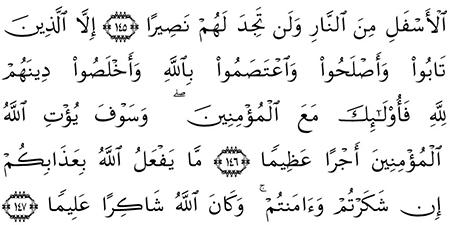 ٱلۡأَسۡفَلِ مِنَ ٱلنَّارِ وَلَن تَجِدَ لَهُمۡ نَصِيرًا ١٤٥ إِلَّا ٱلَّذِينَ
تَابُواْ وَأَصۡلَحُواْ وَٱعۡتَصَمُواْ بِٱللَّهِ وَأَخۡلَصُواْ دِينَهُمۡ
لِلَّهِ فَأُوْلَٰٓئِكَ مَعَ ٱلۡمُؤۡمِنِينَۖ وَسَوۡفَ يُؤۡتِ ٱللَّهُ
ٱلۡمُؤۡمِنِينَ أَجۡرًا عَظِيمٗا ١٤٦ مَّا يَفۡعَلُ ٱللَّهُ بِعَذَابِكُمۡ
إِن شَكَرۡتُمۡ وَءَامَنتُمۡۚ وَكَانَ ٱللَّهُ شَاكِرًا عَلِيمٗا ١٤٧